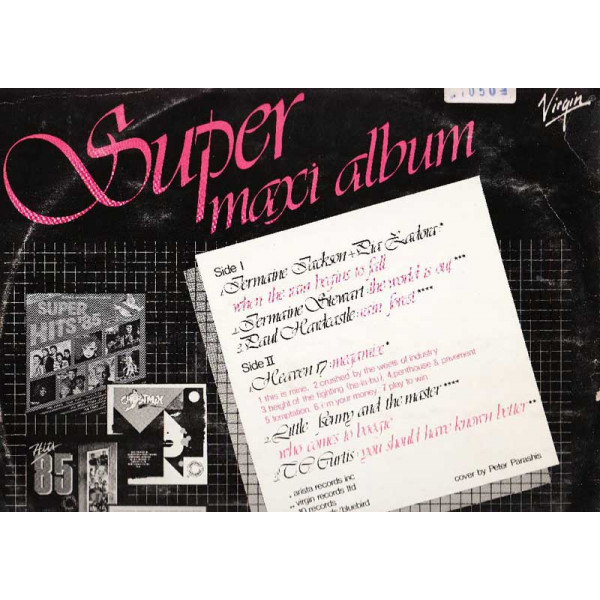 Super
maxi album
Virgin
Side I
1. Jermaine Jackson + Pia Zadora: ***
when the rain begins to fall
2. Jermaine Stewart: the world is out **
3. Paul Hardcastle: rain forest ****
Side II
1. Heaven 17: megamix *
1. this is mine, 2. crushed by the weels of industry
3. height of the fighting (he-la-hu), 4. penthouse & pavement
5. temptation, 6. i'm your money, 7. play to win
2. Little benny and the master ****
who comes to boogie
3. T C Curtis: you should have known better **
* arista records inc
** virgin records ltd
10 records
/bluebird
cover by Peter Parashis
SUPER
HITS '85
Hits
85